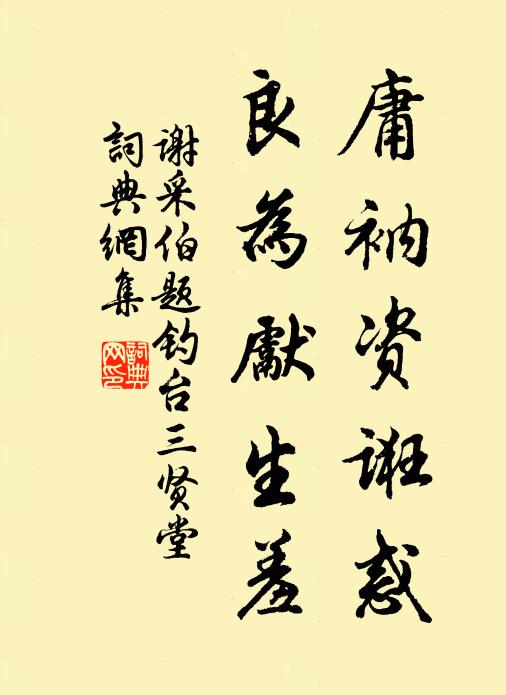 庸衲资誑惑
良為獻生羞
谢采伯题钓台三贤堂
詞典網集
詞典
网印